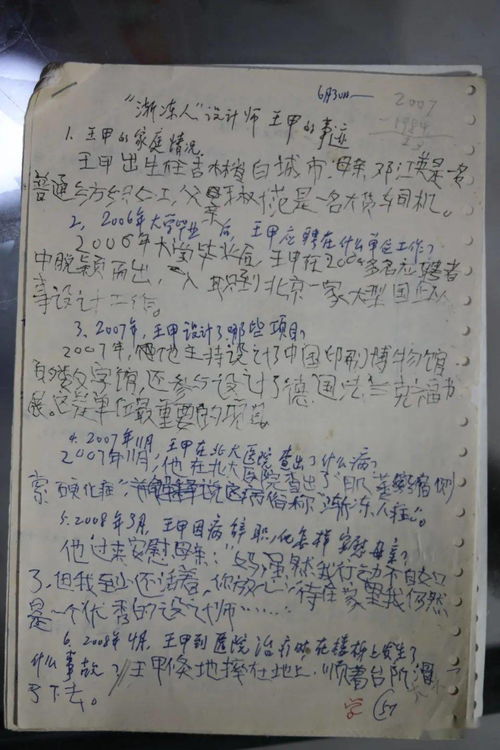 6月30日
2007
-1984
23
“渐冻人”设计师 王甲的事迹
1. 王甲的家庭情况
王甲出生在吉林省白城市,母亲邓江英是一名
普通纺织女工,父亲王叔范是一名大货车司机。
2, 2006年大学毕业后,王甲应聘在什么单位工作?
2006年大学毕业后,王甲在2000多名应聘者
中脱颖而出,入职到北京一家大型国企从
事设计工作。
3. 2007年,王甲设计了哪些项目?
2007年,他主持设计了中国印刷博物馆
数字馆,还参与设计了德国法兰克福书
展。它是单位最重要的项目。
4. 2007年11月,王甲在北大医院查出了什么病?
2007年11月,他在北大医院查出了“肌萎缩侧
索硬化症”,该病俗称“渐冻人症”。
5. 2008年3月,王甲因病辞职,他怎样安慰母亲?
他过来安慰母亲:“妈,虽然我行动不自如
了,但我至少还活着,你放心,待在家里我仍然
是一个优秀的设计师……”
6. 2008年 月,王甲到医院治疗时在楼梯上发生了
什么事故?王甲倏地摔在地上,顺着台阶滑
了下去。
字 57